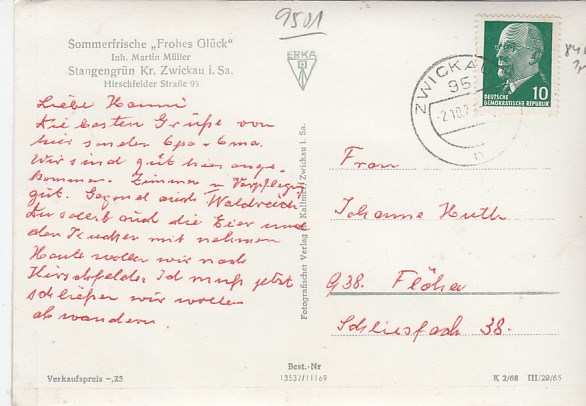 9501
Sommerfrische „Frohes Glück"
Inh. Martin Müller
Stangengrün Kr. Zwickau i. Sa.
Hirschfelder Straße 95
ERKA
ZWICKAU
95
-2.10.7
n
10
DEUTSCHE
DEMOKRATISCHE REPUBLIK
Liebe Hanni
Die besten Grüße von
hier senden Opa - Oma.
Wir sind gut hier ange-
kommen. Zimmer u Verpflegu
gut. Gegend auch Waldreich
Du sollst auch die Eier und
den Kuchen mit nehmen
Heute wollen wir nach
Hirschfelde. Ich muß jetzt
schließen wir wollen
abwandern.
Fotografischer Verlag R. Kallmer, Zwickau i. Sa.
Frau
Johanne Huth
938. Flöha
Schliesfach 38.
Verkaufspreis -,25
Best.-Nr
13537/11169
K 2/68 III/29/65